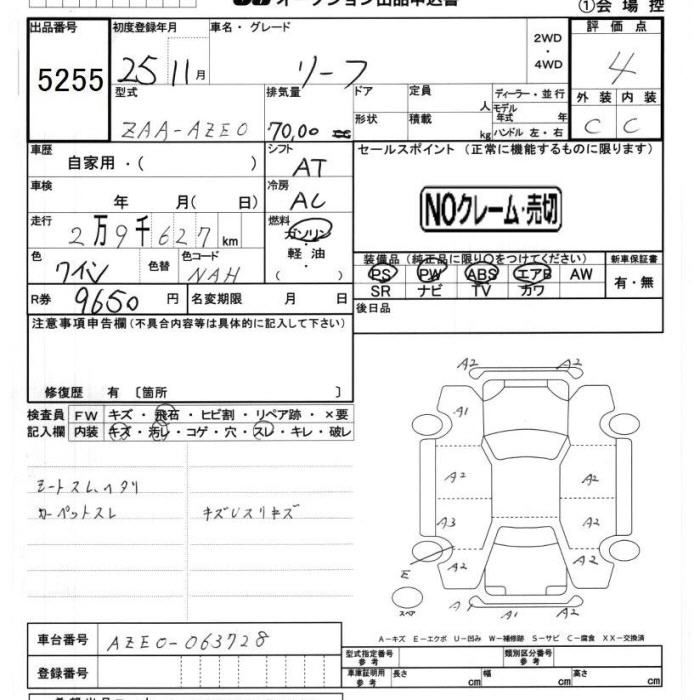 オークション出品申込書
①会場控
出品番号 初度登録年月 車名・グレード 2WD・4WD 評価点
5255 25 11月 リーフ 4
型式 排気量 ドア 定員 人 ディーラー・並行 外装 内装
ZAA-AZE0 70,00 cc 形状 積載 kg モデル年式 年 ハンドル 左・右 C C
車歴 シフト セールスポイント (正常に機能するものに限ります)
自家用・( ) AT
車検 冷房
年 月( 日) AC NOクレーム・売切
走行 燃料
2万9千627km ガソリン・軽油・( )
色 色替 色コード 装備品(純正品に限り○をつけてください) 新車保証書
ワイン NAH PS PW ABS エアB AW 有・無
SR ナビ TV カワ
R券 9650円 名変期限 月 日 後日品
注意事項申告欄(不具合内容等は具体的に記入して下さい)
修復歴 有 〔箇所 〕
検査員 FW キズ・飛石・ヒビ割・リペア跡・×要
記入欄 内装 キズ・汚レ・コゲ・穴・スレ・キレ・破レ
シートスレ、ヘタリ
カーペットスレ キズUスリキズ
A2 A2
A1
A2 A2
A3 A2
E A2 A2
スペア A1 A1 A2
A-キズ E-エクボ U-凹み W-補修跡 S-サビ C-腐食 XX-交換済
車台番号 AZE0-063728
型式指定番号 参考 類別区分番号 参考
登録番号 車庫証明用 参考 長さ cm 幅 cm 高さ cm